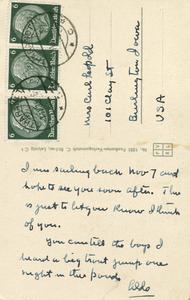 Miss Carl Leopold
101 Clay St
Burlington, Iowa
USA
I am sailing back Nov 7 and
hope to see you soon after. This
is just to let you know I think
of you.
You can tell the boys I
heard a big trout jump one
night in the ponds
Aldo
Deutsches Reich
6
Deutsches Reich
6
Deutsches Reich
6